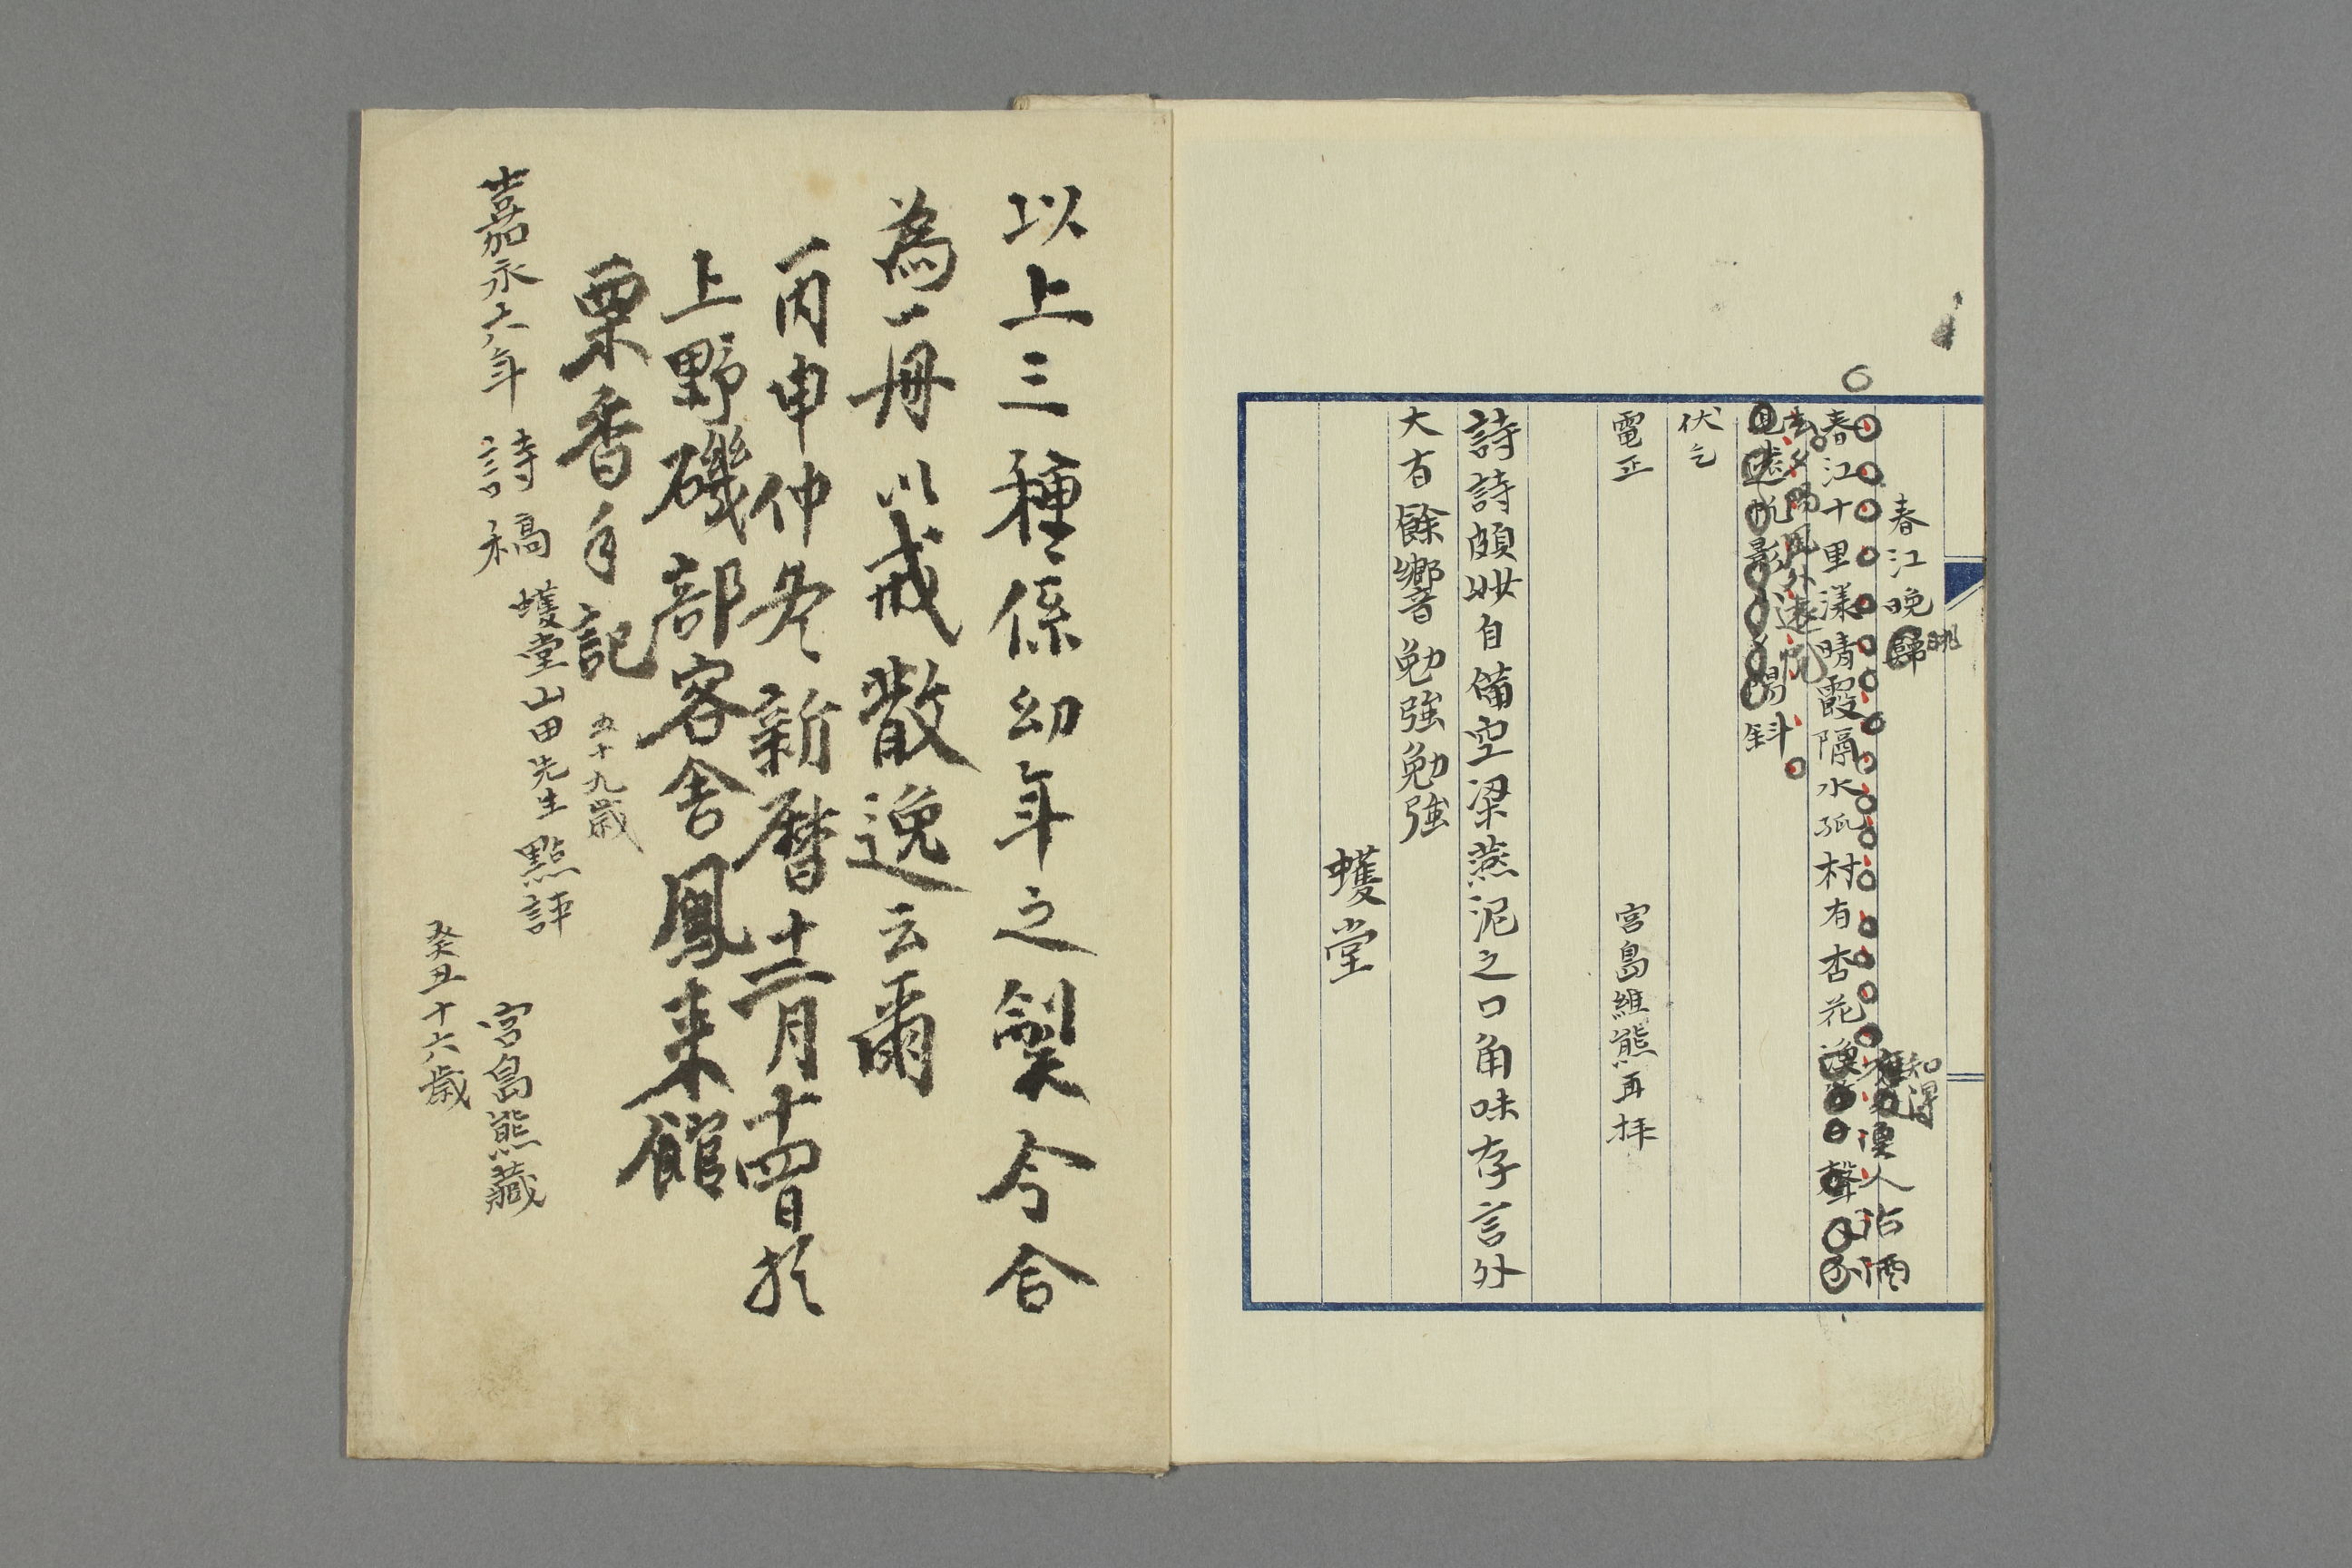 春江晩歸
眺
春江十里漾晴霞隔水孤村有杏花漁
聲
知得
漁人沽酒
去夕陽風外遠帆
見遠帆影夕陽斜
伏乞
電正
宮島維熊再拝
詩詩頗妙自備空梁燕泥之口角味存言外
大有餘響勉強勉強
蠖堂
以上三種係幼年之製今合
為一冊以戒散逸云爾
丙申仲冬新暦十二月十四日於
上野磯部客舎鳳来館
栗香手記
五十九歳
嘉永六年詩稿
蠖堂山田先生點評
宮島熊蔵
癸丑十六歳